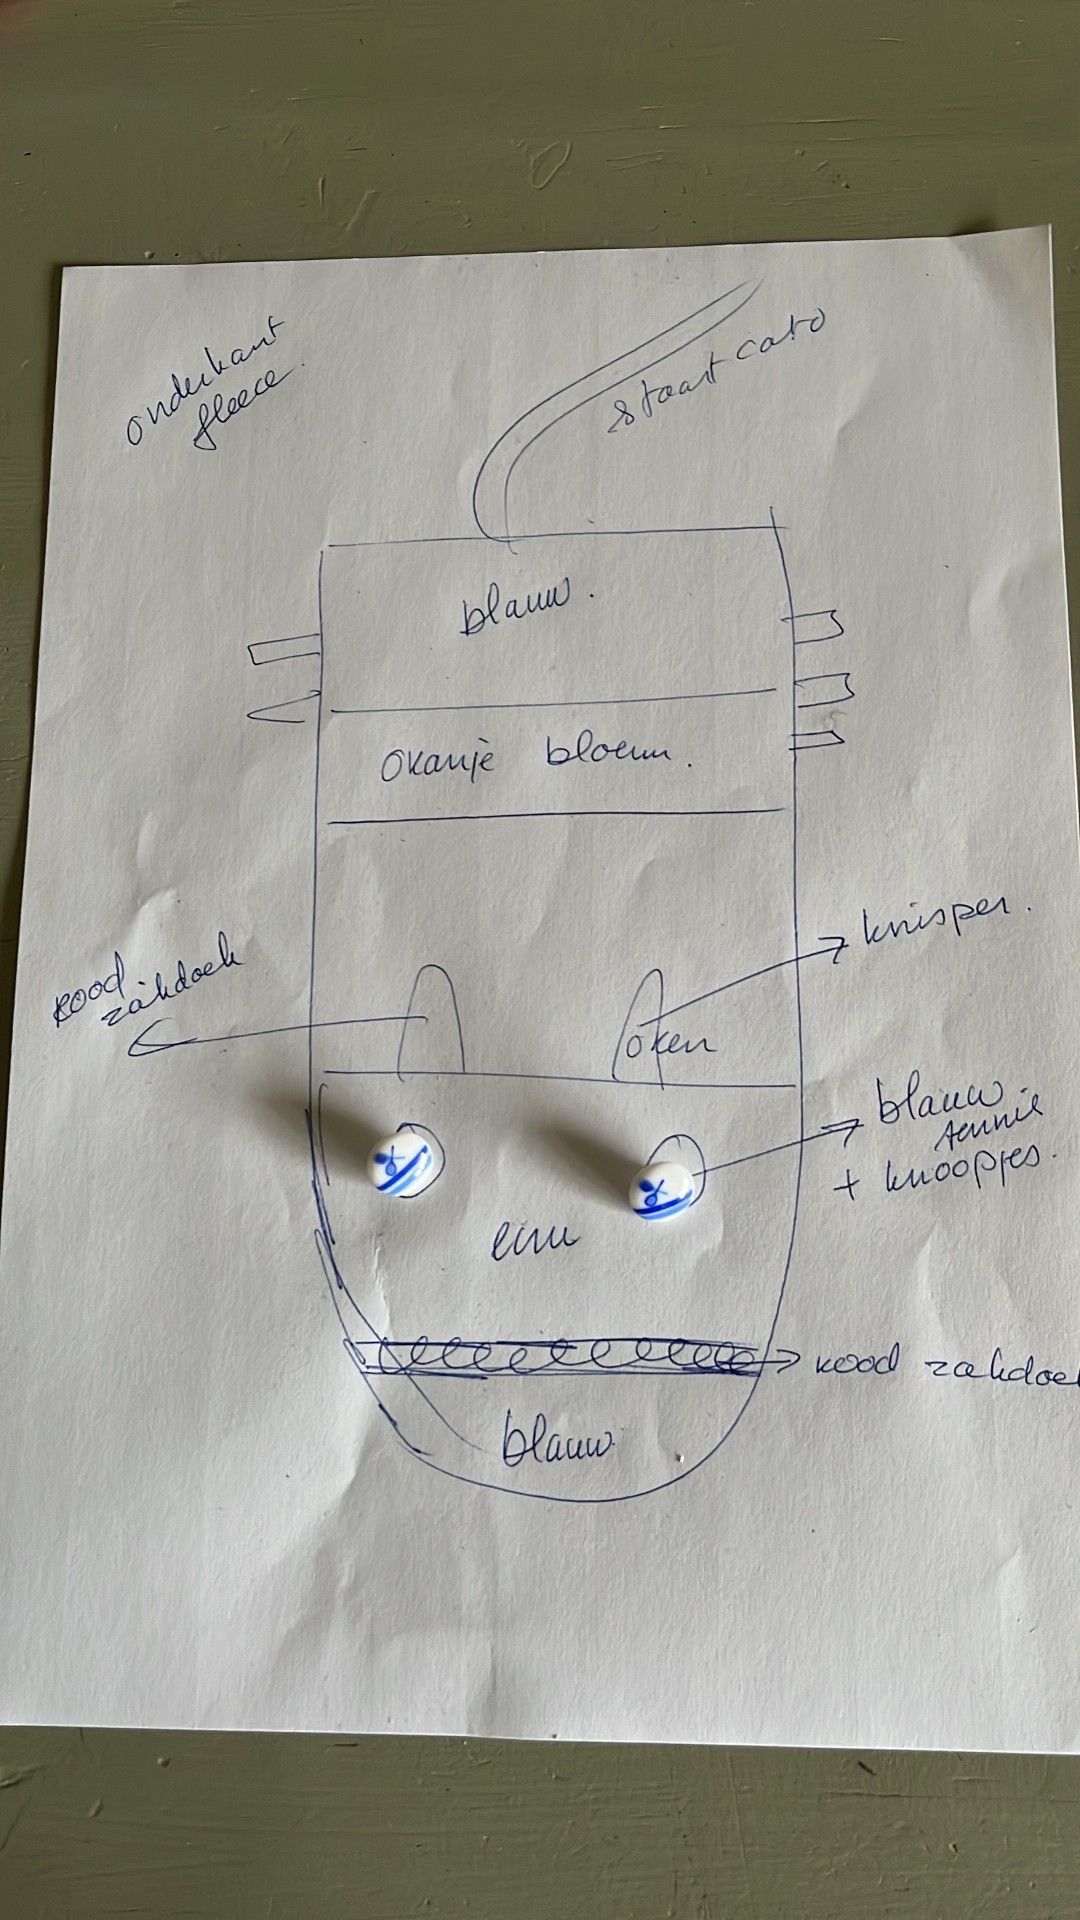 onderkant
fleece.
staart cato
blauw.
oranje bloem.
knisper.
rood
zakdoek
oren
blauw
tennis
+ knoopjes.
ecru
rood zakdoek
blauw